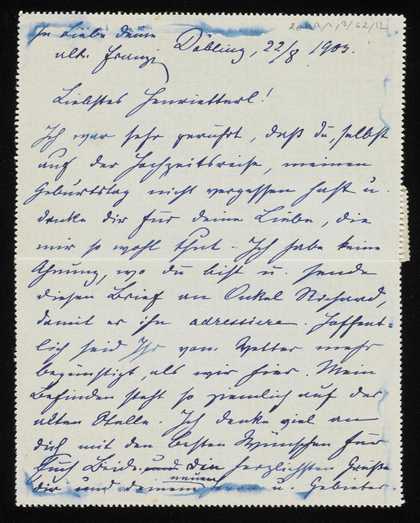 In Liebe deine
alte Franzi
Döbling, 22/8 1903.
Liebstes Henrietterl!
Ich war sehr gerührt, daß du, selbst
auf der Hochzeitsreise, meinen
Geburtstag nicht vergessen hast u.
danke dir für deine Liebe, die
mir so wohl thut. Ich habe keine
Ahnung, wo du bist u. sende
diesen Brief an Onkel Richard,
damit er ihn adressiere. Hoffent-
lich seid Ihr vom Wetter mehr
begünstigt, als wir hier. Mein
Befinden steht so ziemlich auf der
alten Stelle. Ich denke viel an
dich mit den besten Wünschen für
Euch Beide und die herzlichsten Grüße
dir und deinem neuen u. Gebieter.